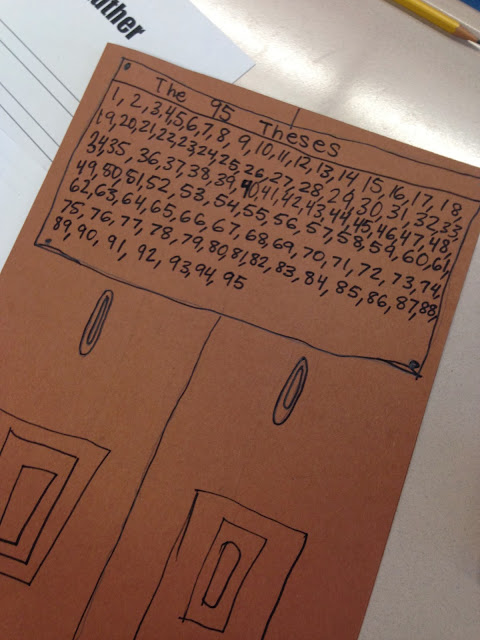 uther
The 95 Theses
1, 2, 3, 4, 5, 6, 7, 8, 9, 10, 11, 12, 13, 14 15, 16, 17, 18,
19, 20, 21, 22, 23, 24, 25, 26, 27, 28, 29, 30, 31, 32, 33,
34 35, 36, 37, 38, 39, 40, 41, 42, 43, 44, 45, 46, 47, 48
49, 50, 51, 52, 53, 54, 55, 56, 57, 58, 59, 60, 61,
62, 63, 64, 65, 66, 67, 68, 69, 70, 71, 72, 73, 74
75, 76, 77, 78, 79, 80, 81, 82, 83, 84, 85, 86, 87, 88,
89, 90, 91, 92, 93, 94, 95